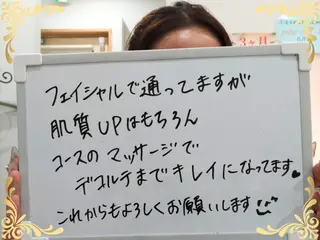 フェイシャルで通ってますが
肌質UPはもちろん
コースのマッサージで
デコルテまでキレイになってます♥
これからもよろしくお願いします